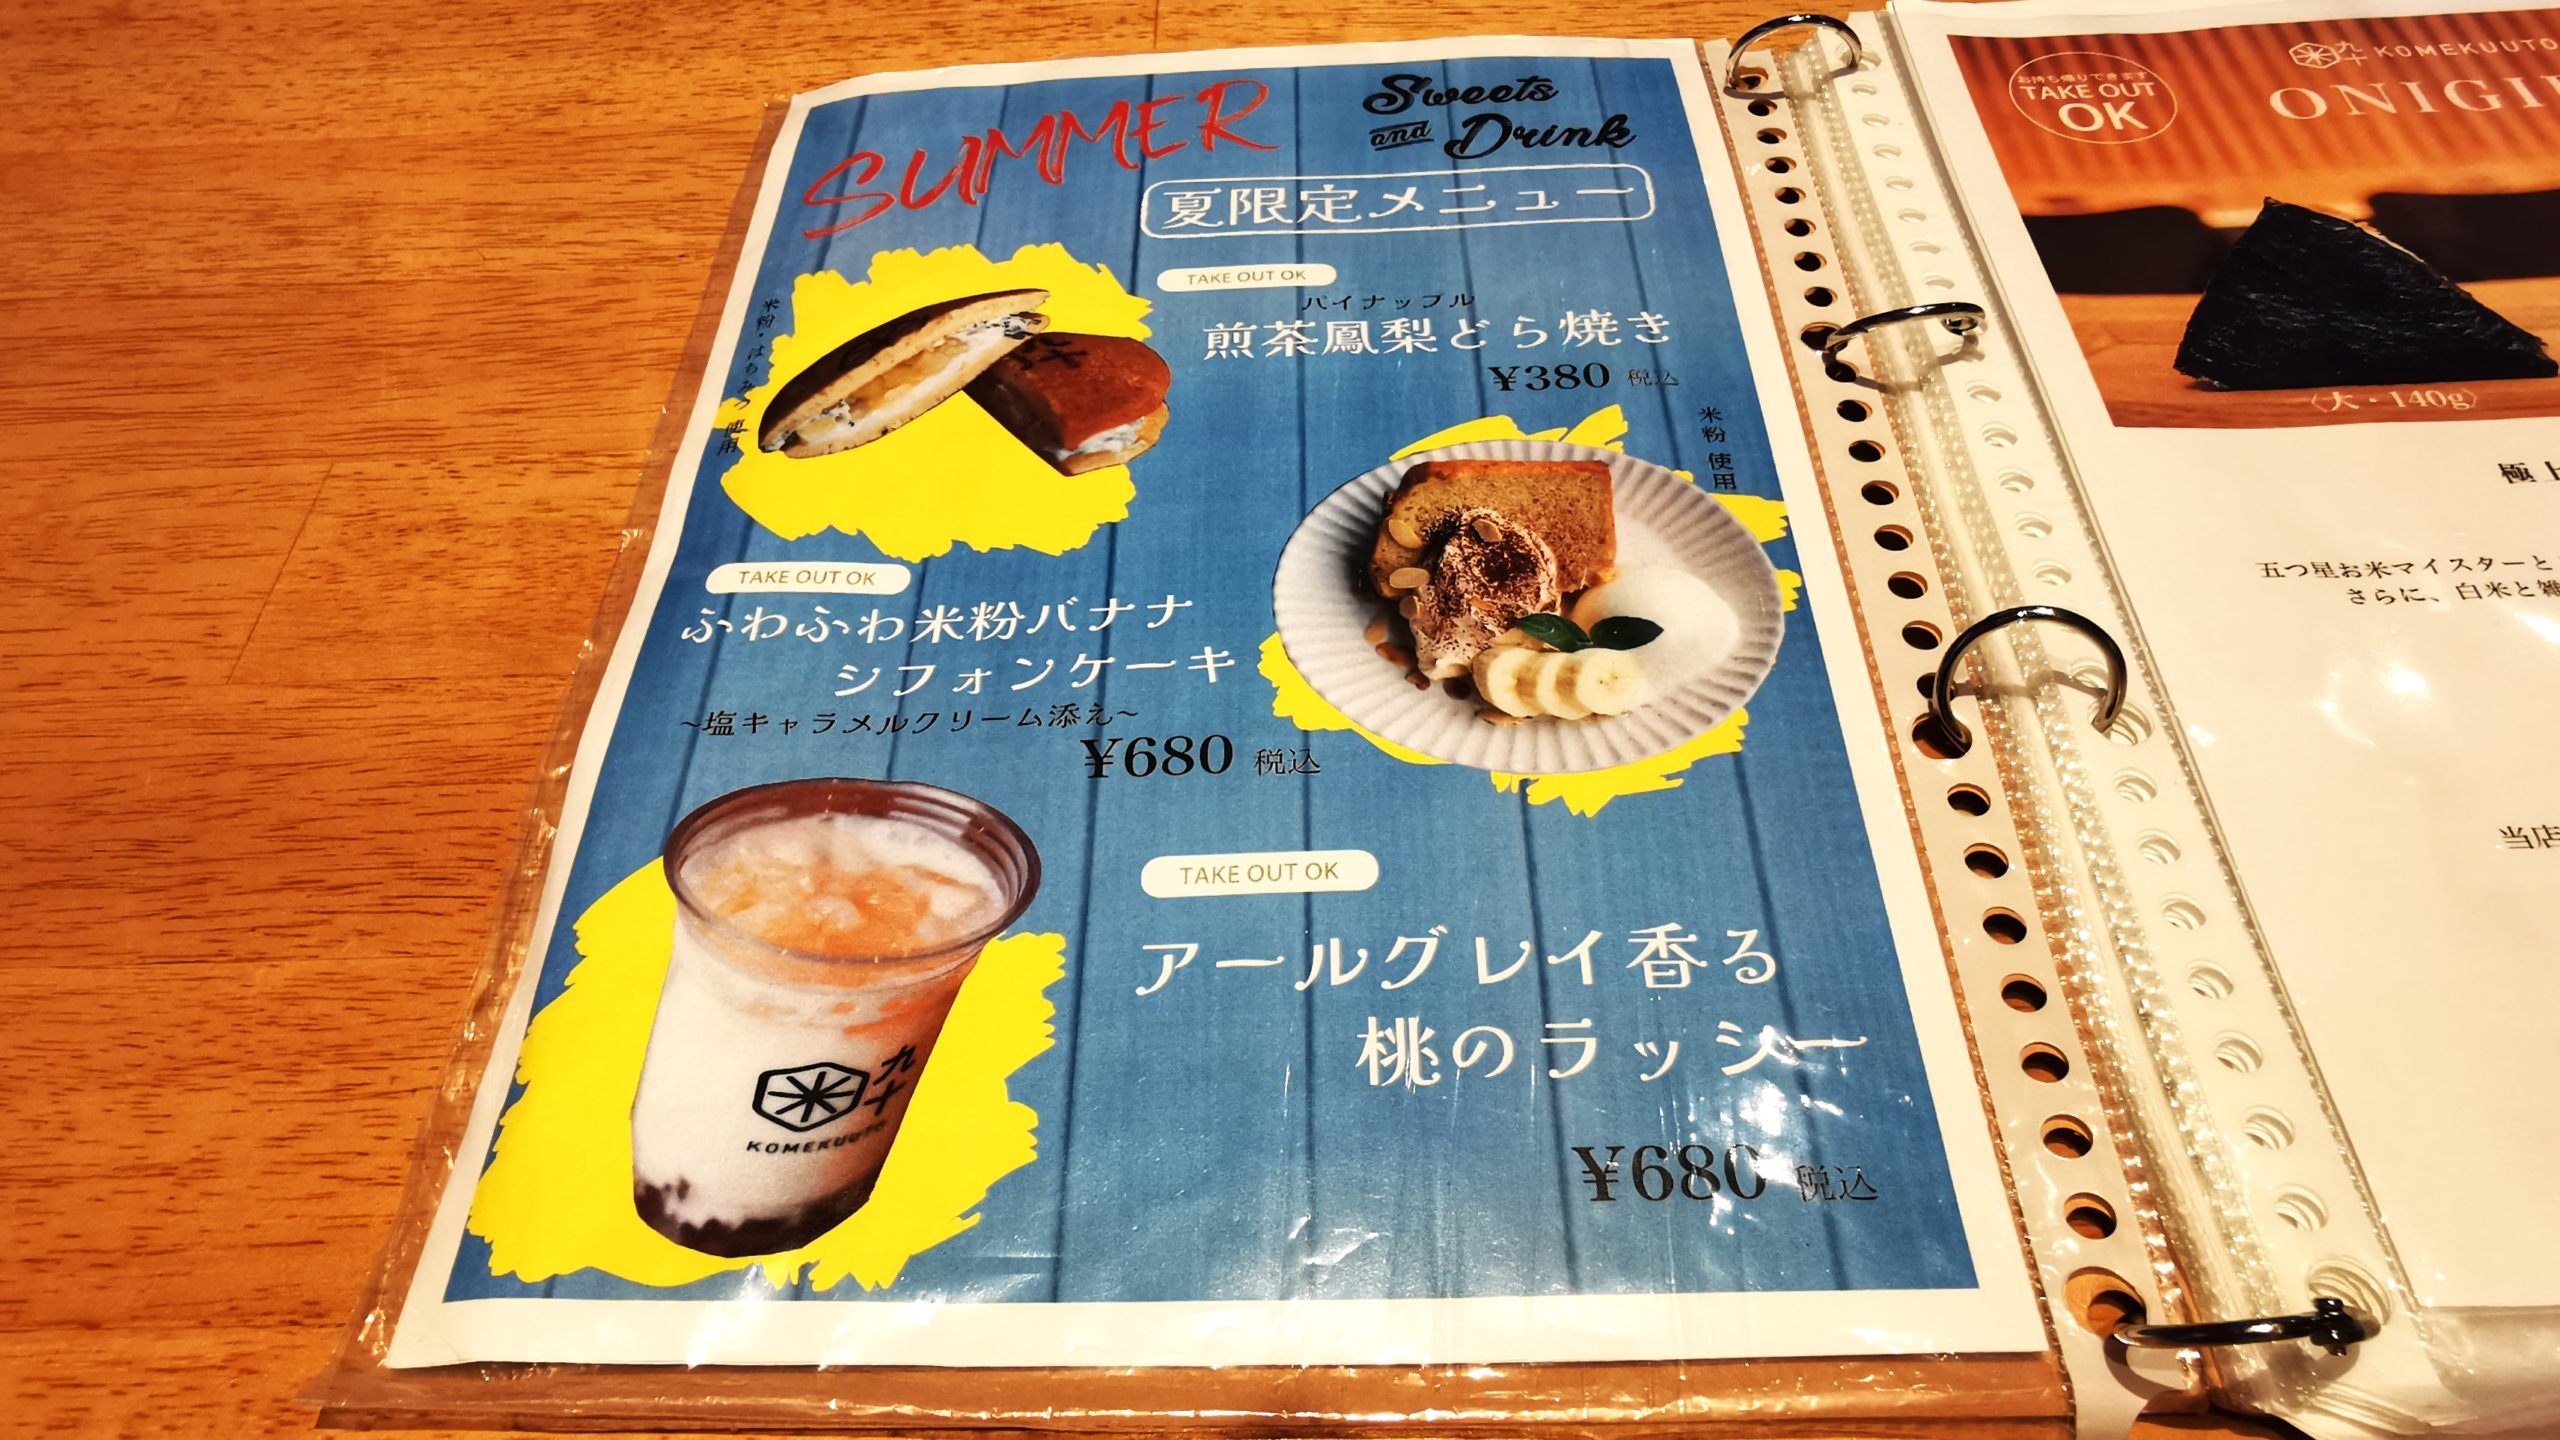 SUMMER
Sweets
and Drink
夏限定メニュー
TAKE OUT OK
パイナップル
煎茶鳳梨どら焼き
¥380 税込
米粉・はちみつ使用
米粉使用
TAKE OUT OK
ふわふわ米粉バナナ
シフォンケーキ
~塩キャラメルクリーム添え~
¥680 税込
TAKE OUT OK
アールグレイ香る
桃のラッシー
¥680 税込
米九十
KOMEKUUTO
お持ち帰りできます
TAKE OUT
OK
米九十 KOMEKUUTO
ONIGI
〈大・140g〉
極上
五つ星お米マイスターと
さらに、白米と雑
当店